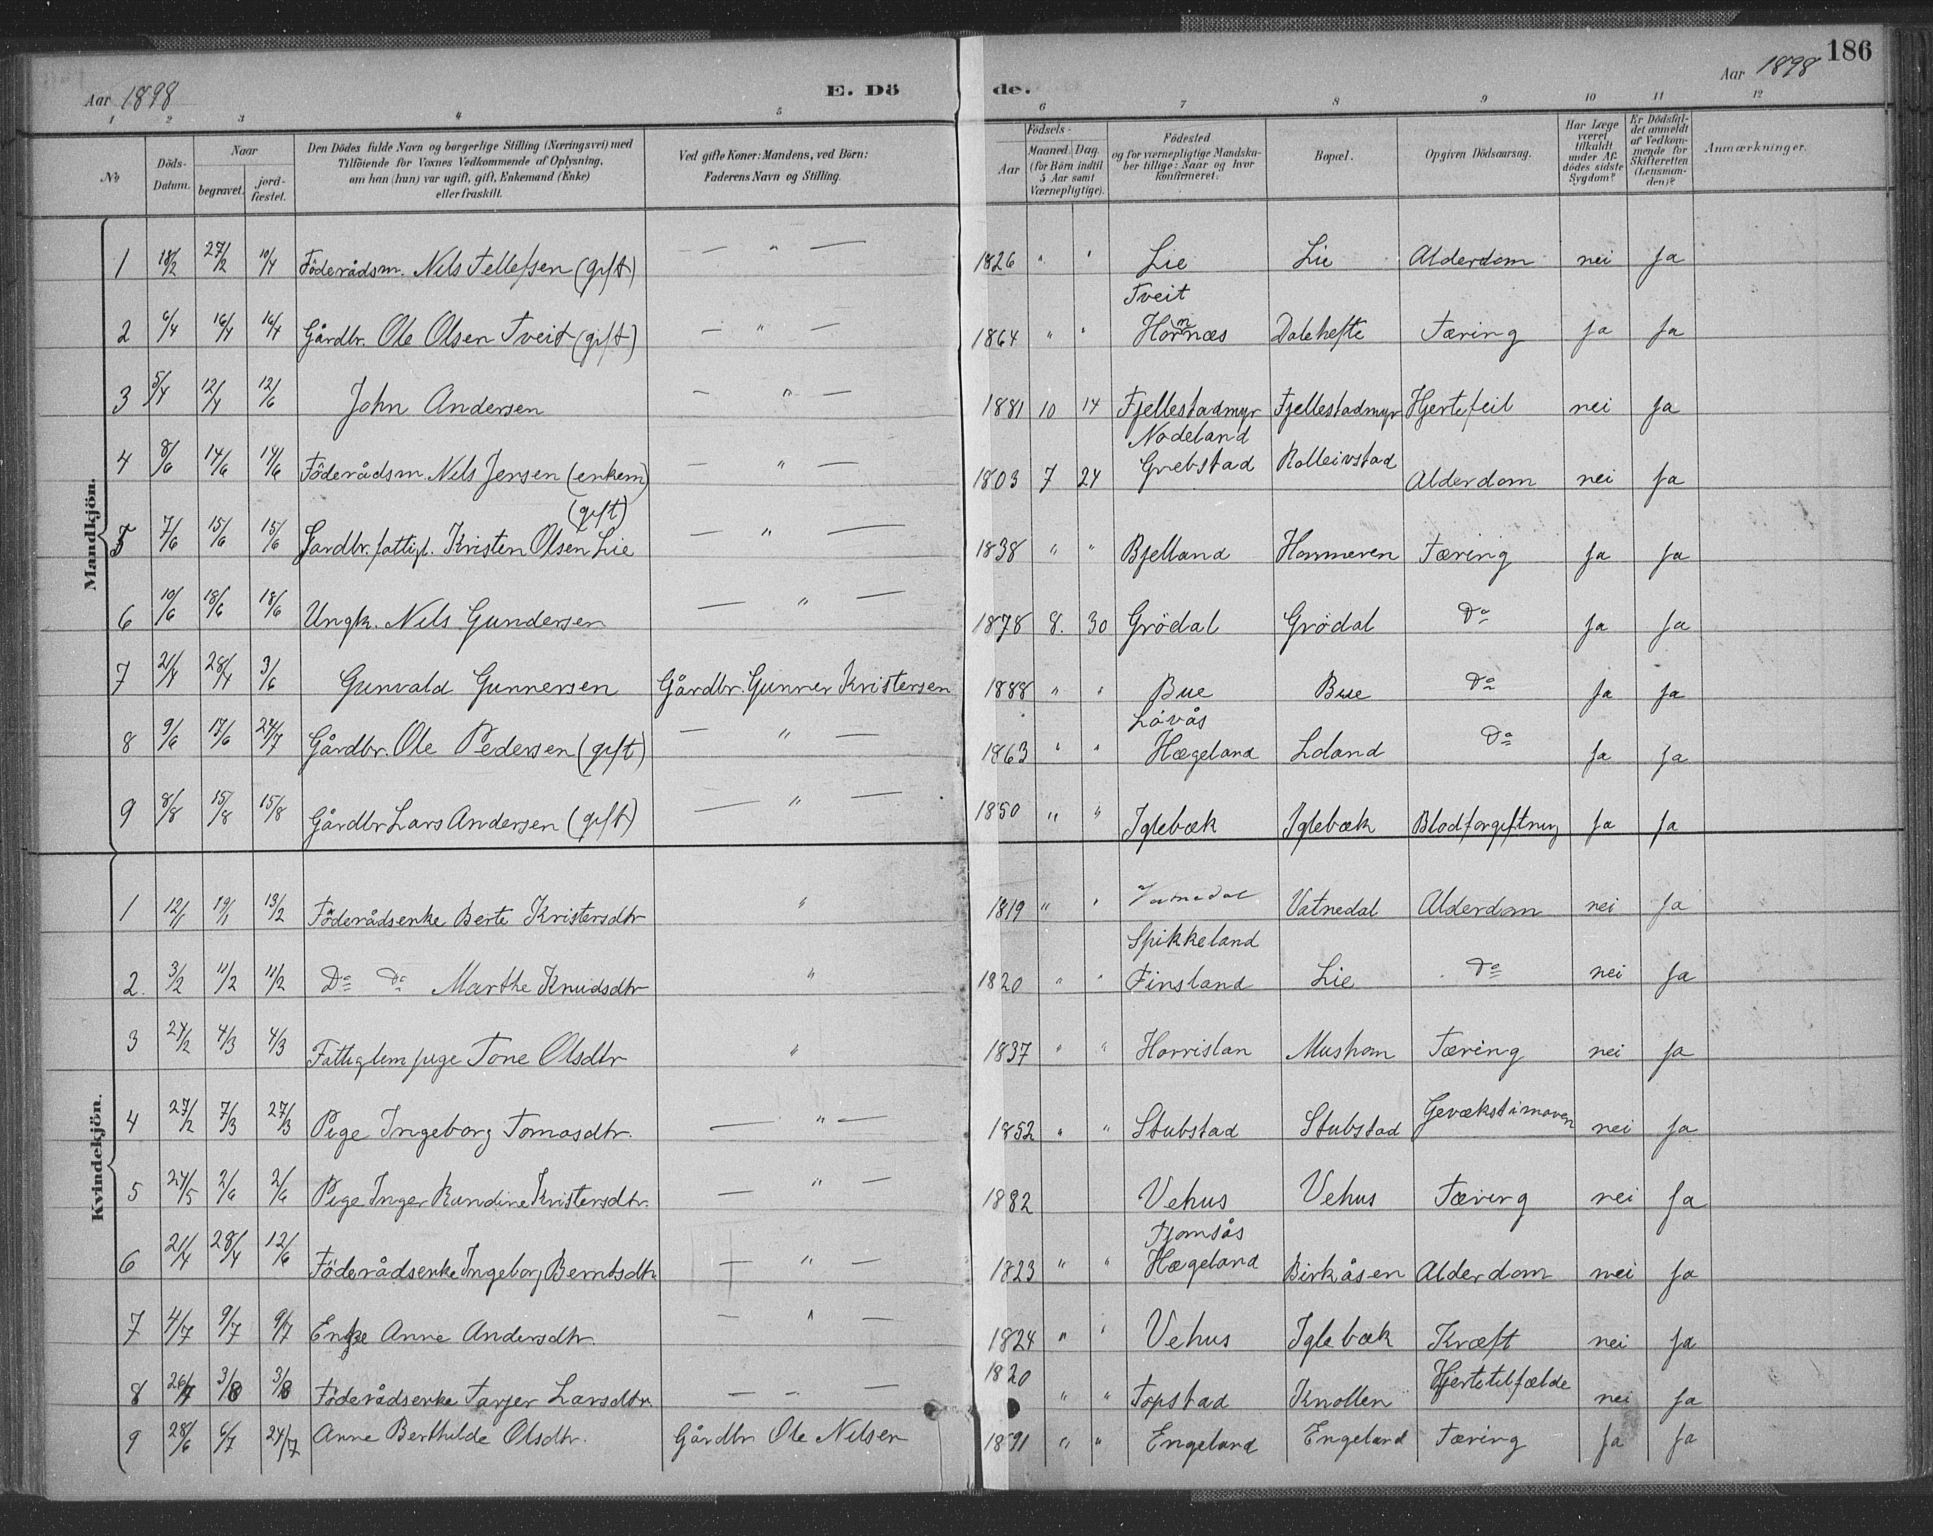 Aar 1898 E. Dö de. Aar 1898 186
1 2 3 4 5 6 7 8 9 10 11 12
No Döds-Datum. Naar begravet. jord-fæstet. Den Dödes fulde Navn og borgerlige Stilling (Næringsvei) med Tilföiende for Voxnes Vedkommende af Oplysning, om han (hun) var ugift, gift, Enkemand (Enke) eller fraskilt. Ved gifte Koner: Mandens, ved Börn: Faderens Navn og Stilling. Födsels- Aar Maaned. Dag. (for Börn indtil 5 Aar samt Værnepligtige). Födested og for værnepligtige Mandskaber tillige: Naar og hvor konfirmeret. Bopæl. Opgiven Dödsaarsag. Har Læge været tilkaldt under Afdödes sidste Sygdom? Er Dödsfaldet anmeldt af Vedkommende for Skifteretten (Lensmanden)? Anmærkninger.
Mandkjön.
1 18/2 27/2 10/4 Föderådsm. Nils Tellefsen (gift) — " — 1826 " " Lie Lie Alderdom nei Ja
2 6/4 16/4 16/4 Gårdbr. Ole Olsen Tveit (gift) — " — 1864 " " Tveit Hornnæs Dalehefte Tæring Ja Ja
3 5/4 12/4 12/6 John Andersen — " — 1881 10 14 Fjellestadmyr Fjellestadmyr Hjertefeil nei Ja
4 8/6 14/6 14/6 Föderådsm. Nils Jensen (enkem) — " — 1803 7 24 Nodeland Grebstad Rolleivstad Alderdom nei Ja
5 7/6 15/6 15/6 Gardbr. fattigl. Kristen Olsen Lie (gift) — " — 1838 " " Bjelland Hommeren Tæring Ja Ja
6 10/6 18/6 18/6 Ungk. Nils Gundersen — " — 1878 8. 30 Grödal Grödal Do Ja Ja
7 21/4 28/4 3/6 Gunvald Gunnersen Gårdbr. Gunner Kristersen 1888 " " Bue Bue Do Ja Ja
8 9/6 17/6 24/7 Gårdbr. Ole Pedersen (gift) — " — 1863 " " Lövås Hægeland Loland Do Ja Ja
9 8/8 15/8 15/8 Gårdbr Lars Andersen (gift) — " — 1850 " " Iglebæk Iglebæk Blodforgiftning Ja Ja
Kvindekjön.
1 12/1 19/1 13/2 Föderådsenke Berte Kristersdtr " 1819 " " Vatnedal Vatnedal Alderdom nei Ja
2. 3/2 11/2 11/2 Do Do Marthe Knudsdtr " 1820 " " Spikkeland Finsland Lie Do nei Ja
3 24/2 4/3 4/3 Fattiglem pige Tone Olsdtr " 1837 " " Horrislan Mushom Tæring nei Ja
4 27/2 7/3 27/3 Pige Ingeborg Tomasdtr. — " — 1852 " " Stubstad Stubstad Gevækst i maven nei Ja
5 24/5 2/6 2/6 Pige Inger Rundine Kristersdtr. — " — 1882 Vehus Vehus Tæring nei Ja
6 21/4 28/4 12/6 Föderådsenke Ingeborg Berntsdtr — " — 1823 " " Fjomsås Hægeland Birkåsen Alderdom nei Ja
7 4/7 9/7 9/7 Enke Anne Andersdtr. — " — 1824 " " Vehus Iglebæk Kræft nei Ja
8 26/7 3/8 3/8 Föderådsenke Tarjer Larsdtr — - — 1820 " " Topstad Knollen Hjertetilfælde nei Ja
9 28/6 6/7 24/7 Anne Berthilde Olsdtr. Gårdbr Ole Nilsen 1891 " " Engeland Engeland Tæring Ja Ja